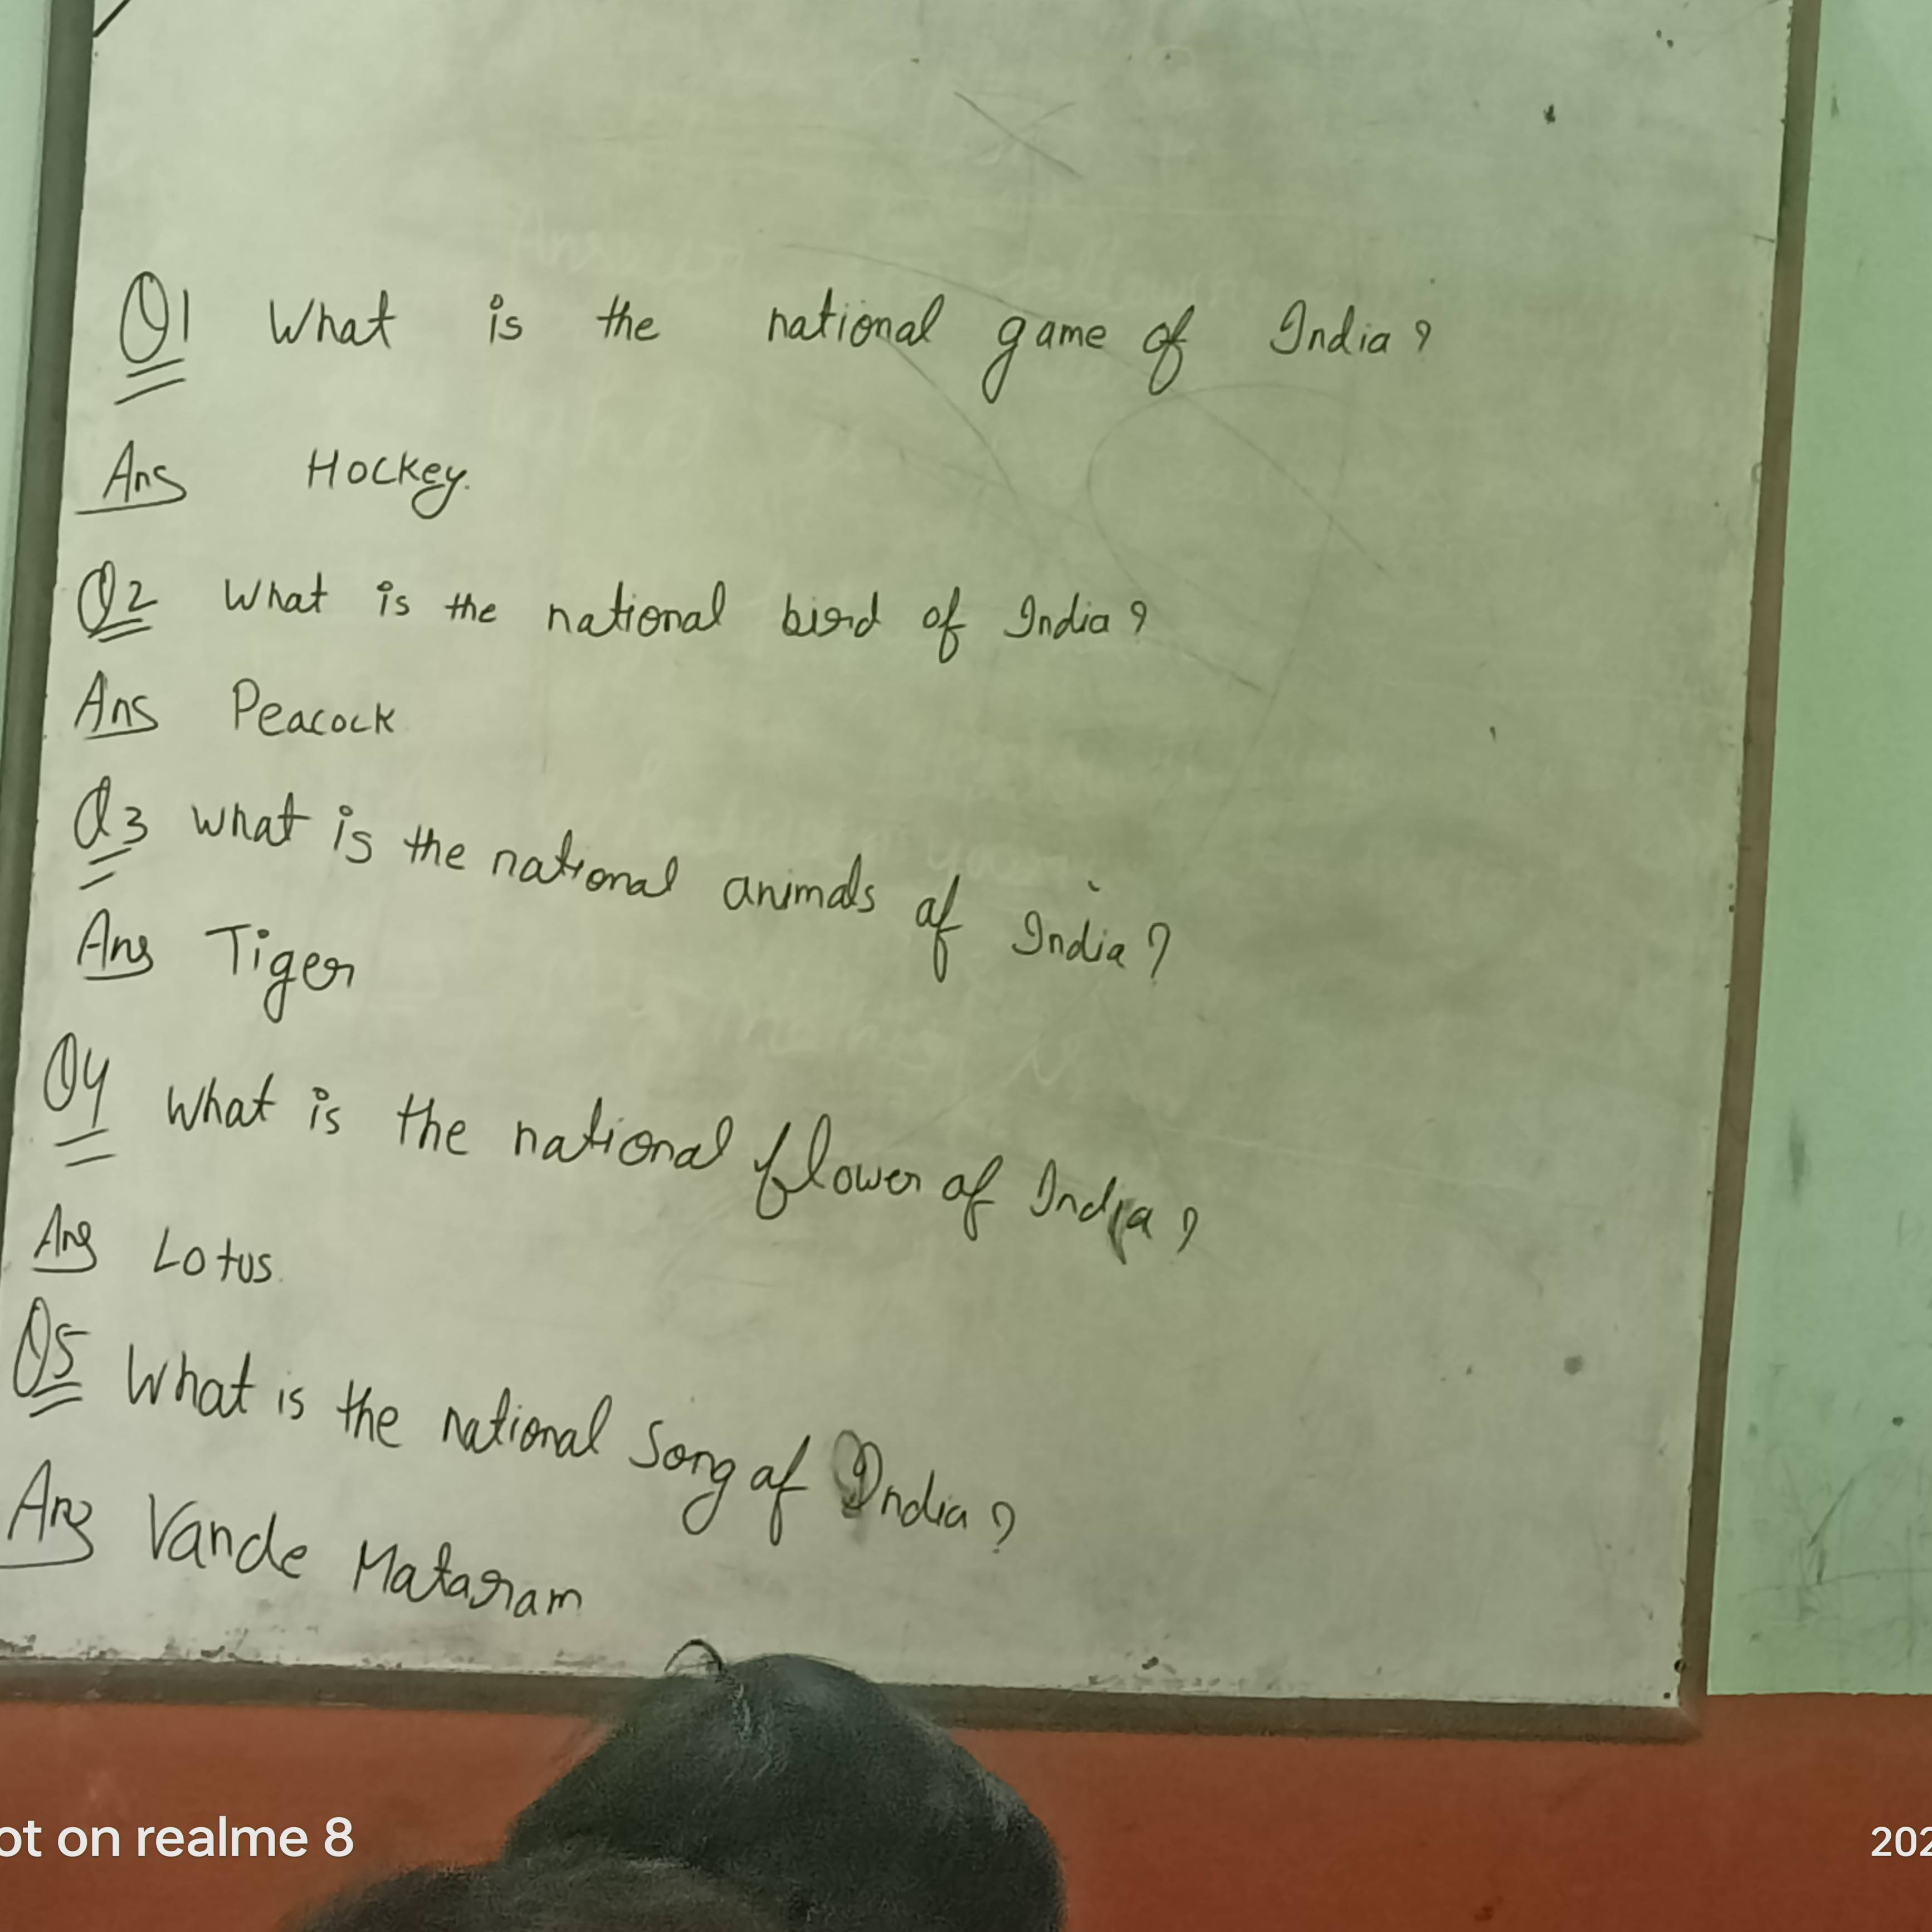 Q1 What is the national game of India?
Ans Hockey.
Q2 What is the national bird of India?
Ans Peacock
Q3 What is the national animals of India?
Ans Tiger
Q4 What is the national flower of India?
Ans Lotus.
Q5 What is the national Song of India?
Ans Vande Mataram
ot on realme 8
202